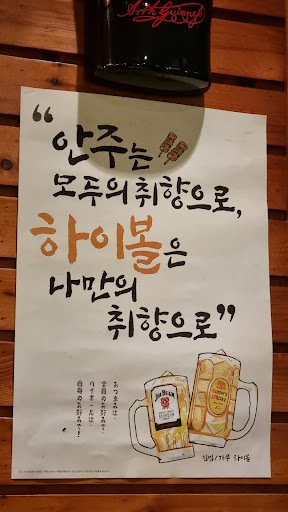 Arth Guinness
“안주는
모두의 취향으로,
하이볼은
나만의
취향으로”
おつまみは、
全員のお好みで、
ハイボールは、
自分のお好みで!
JIM BEAM
짐빔/가쿠 하이볼